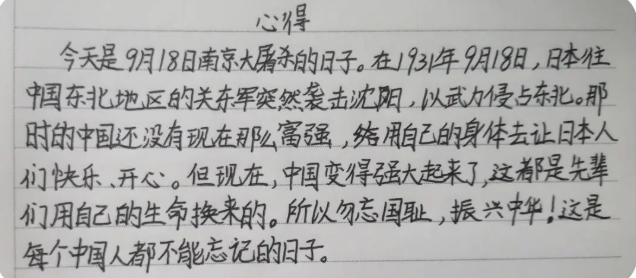 心得
今天是9月18日南京大屠杀的日子。在1931年9月18日,日本往
中国东北地区的关东军突然袭击沈阳,以武力侵占东北。那
时的中国还没有现在那么富强,用自己的身体去让日本人
们快乐、开心。但现在,中国变得强大起来了,这都是先辈
们用自己的生命换来的。所以勿忘国耻,振兴中华!这是
每个中国人都不能忘记的日子。